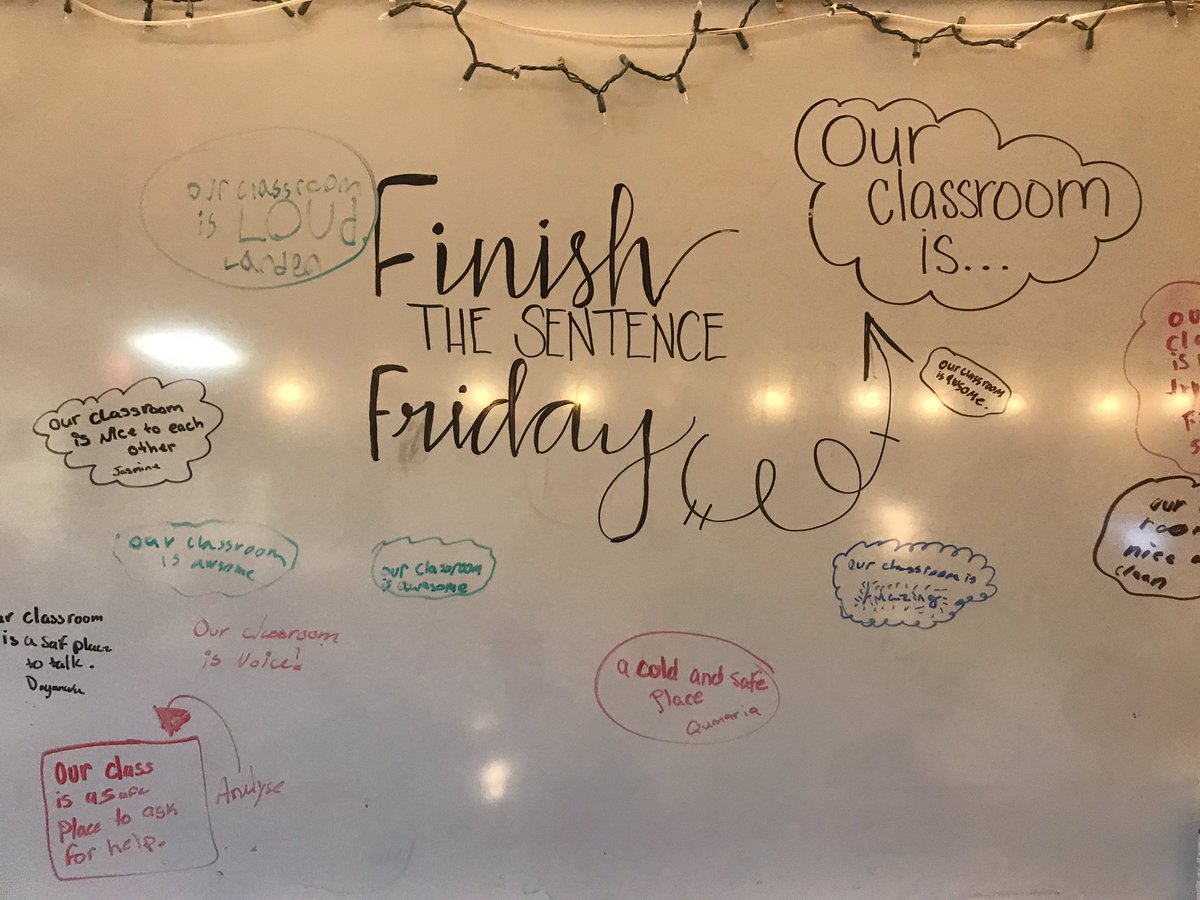 Our
classroom
is...
our classroom
is LOUD.
Landen
Finish
THE SENTENCE
Friday
our classroom
is awsome.
our classroom
is Nice to each
other
Jasmine
our
cla
is
our
room
nice
clean
our classroom
is awsome
our classroom
is awesome
our classroom is
Amazing
r classroom
is a saf place
to talk.
Our classroom
is Noice!
a cold and safe
place
Qumaria
Our class
is a safe
place to ask
for help.
Analyse